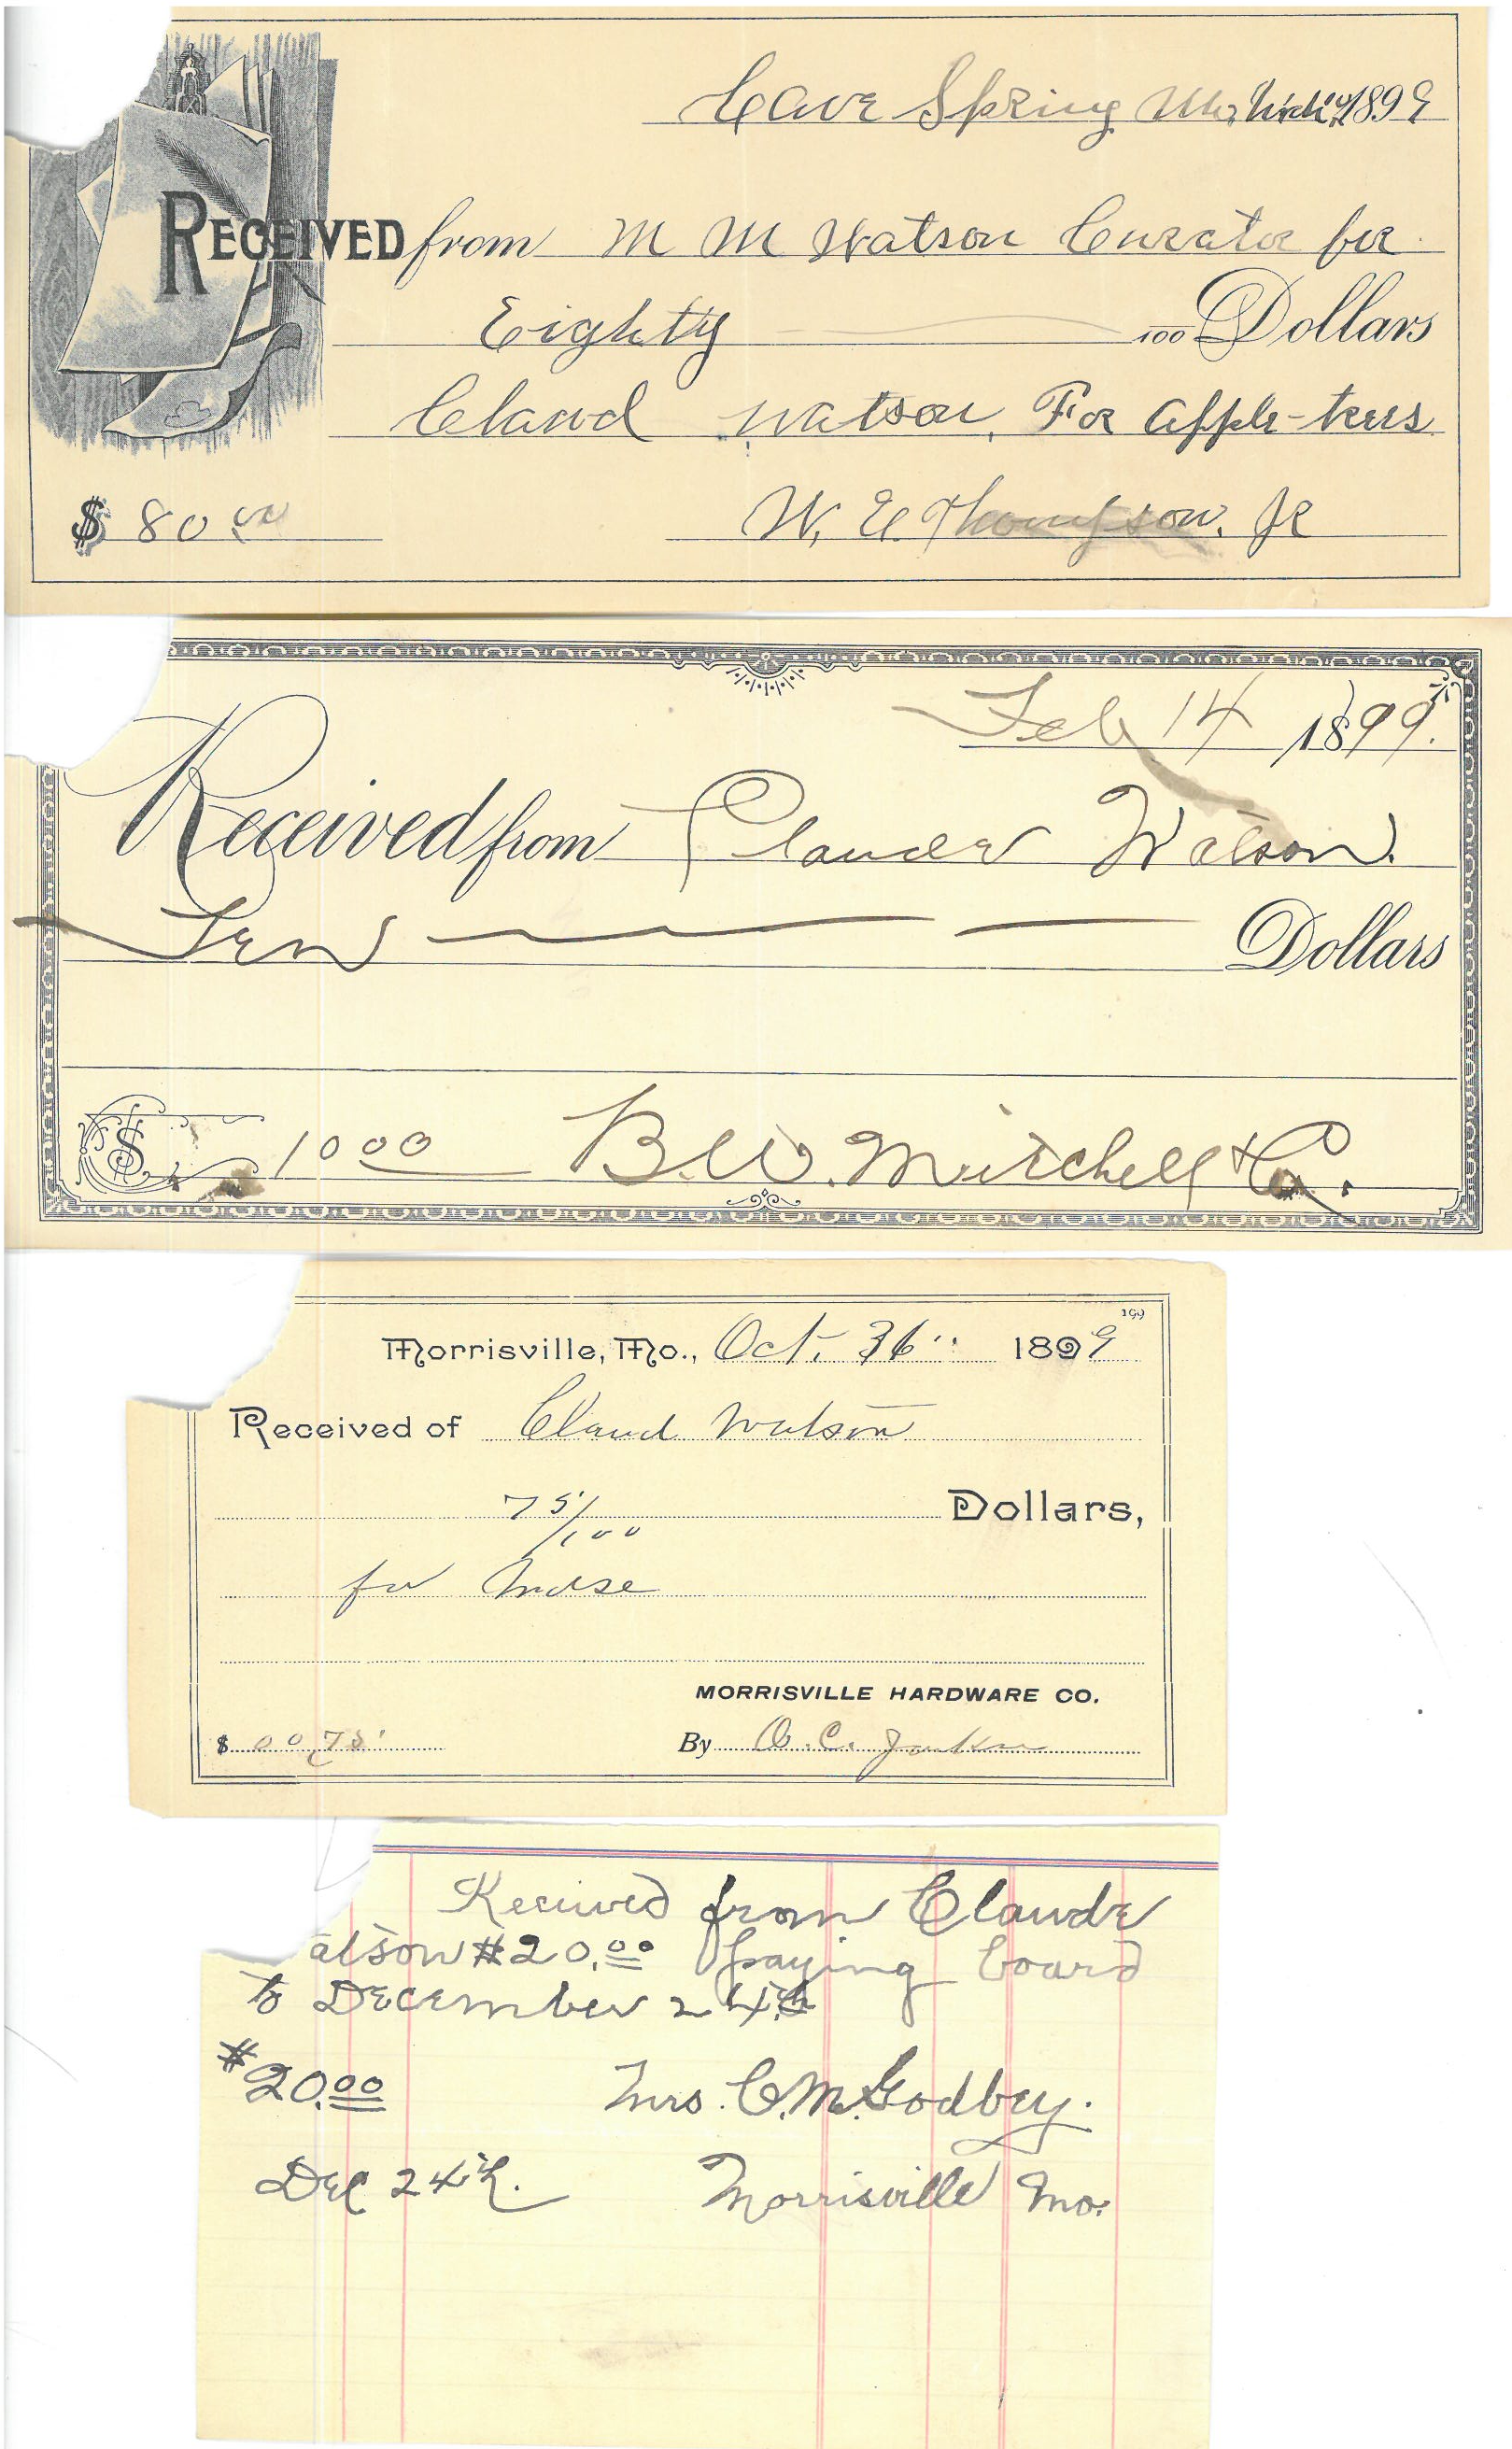 Cave Spring Mo, 1899
RECEIVED from M M Watson Curator for
Eighty 100 Dollars
Claud Watson, For apple-trees
$ 80 00 W. E. Thompson. Jr
Feb 14 1899.
Received from Claude Watson.
Ten Dollars
$ 10 00 B.W. Mitchell & Co.
199
Morrisville, Mo., Oct. 1899
Received of Claud Watson
75/100 Dollars,
for Mdse
MORRISVILLE HARDWARE CO.
$ 00 75 By O. C.
Received from Claude
atson $20.00 paying board
to December 24th
$20.00 Mrs. C. M. Godbey.
Dec 24th. Morrisville Mo.